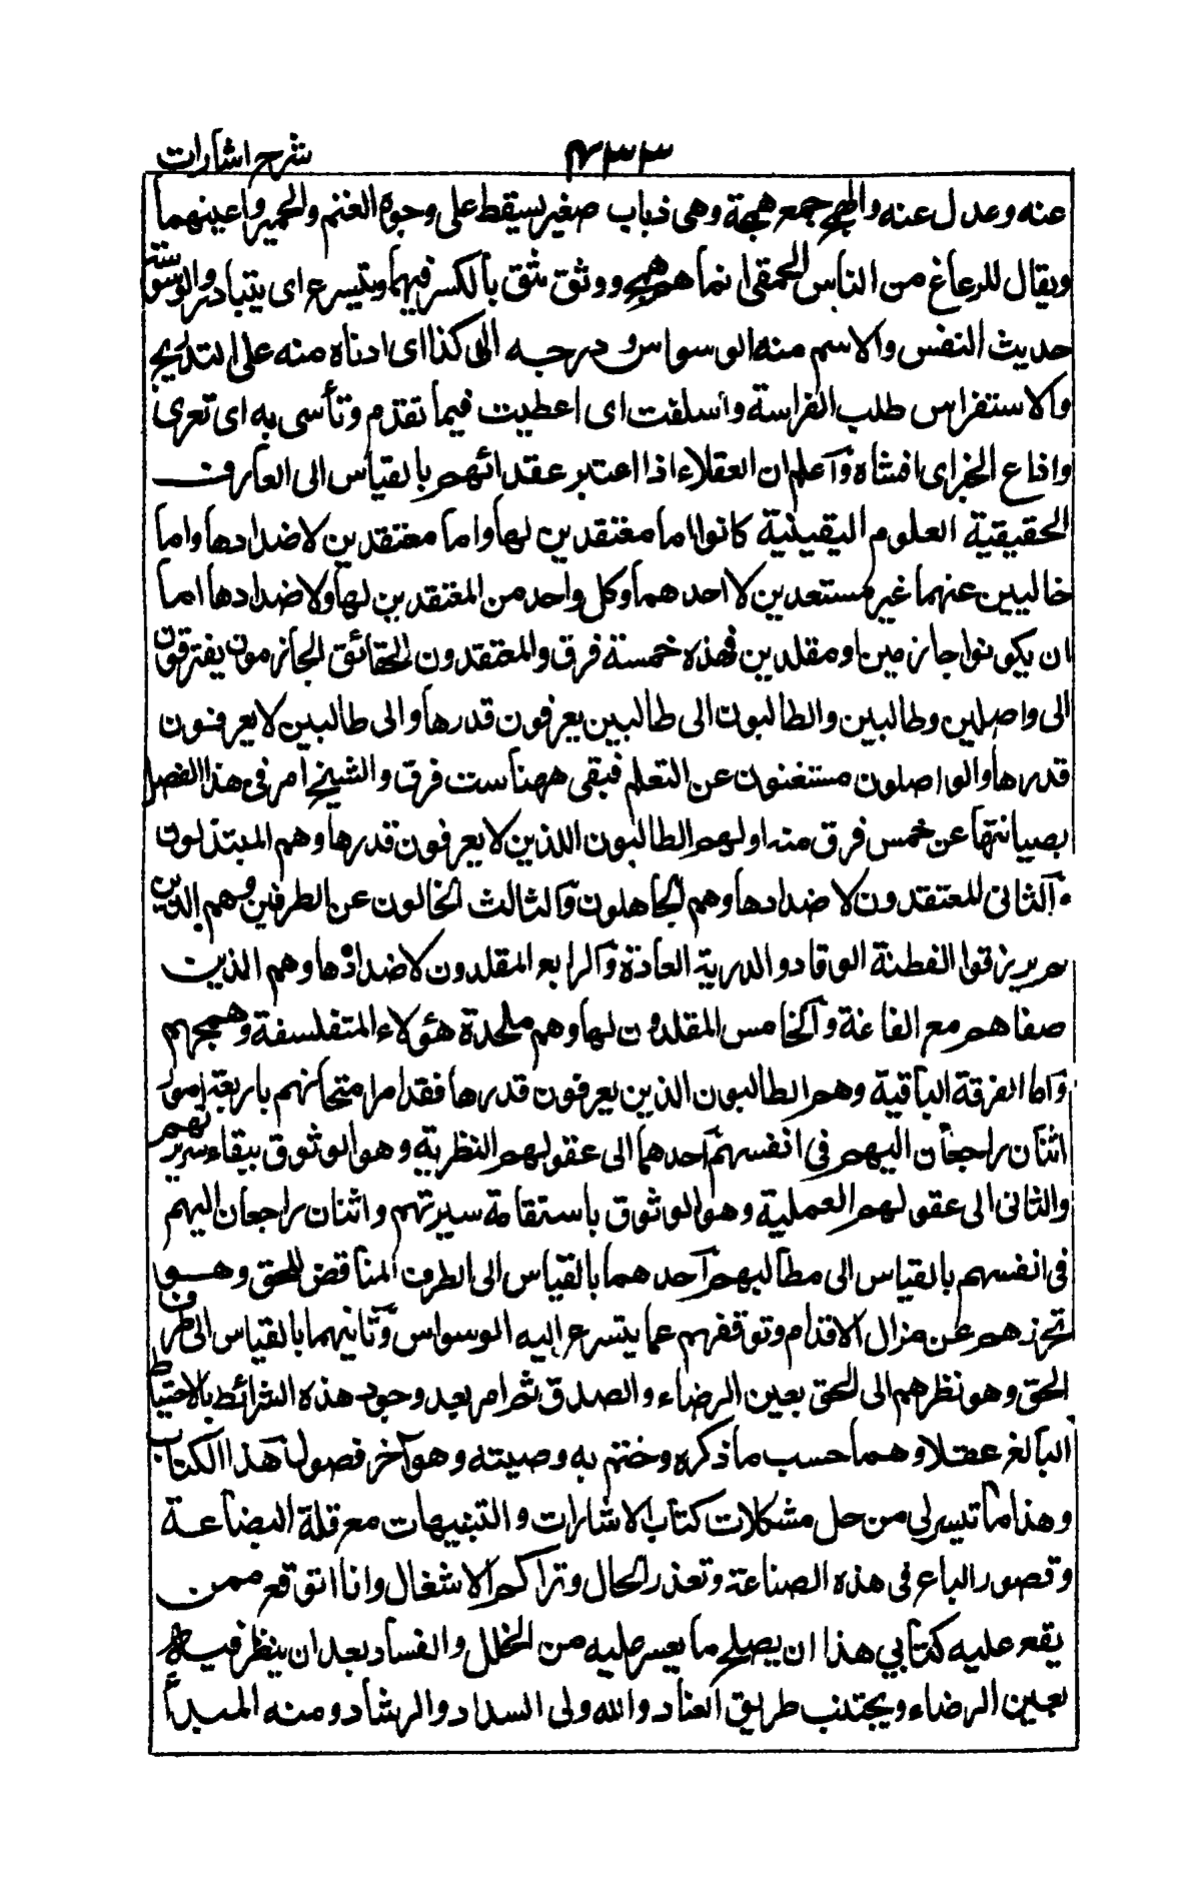 شرح اشارات
٤٣٣
عنه وعدل عنه والهمج جمع همجة وهى ذباب صغير يسقط على وجوه الغنم والحمير واعينهما
ويقال للرعاغ من الناس الحمقى انما هم همج ووثق يثق بالكسر فيهما ويتسرع اى يتبادر والوسوسة
حديث النفس والاسم منه الوسواس ودرجه الى كذا اى ادناه منه على التدريج
والاستفراس طلب الفراسة واسلفت اى اعطيت فيما تقدم وتأسى به اى تعزى
واذاع الخبر اى افشاه وآعلم ان العقلاء اذا اعتبر عقدائهم بالقياس الى المعارف
الحقيقية العلوم اليقينية كانوا اما معتقدين لها واما معتقدين لاضدادها واما
خاليين عنهما غير مستعدين لاحدهما وكل واحد من المعتقدين لها ولاضدادها اما
ان يكونوا جازمين او مقلدين فهذه خمسة فرق والمعتقدون للحقائق الجازمون يفترقون
الى واصلين وطالبين والطالبون الى طالبين يعرفون قدرها والى طالبين لا يعرفون
قدرها والواصلون مستغنون عن التعلم فبقى ههنا ست فرق والشيخ امر فى هذا الفصل
بصيانتها عن خمس فرق منه اولهم الطالبون اللذين لا يعرفون قدرها وهم المبتذلون
وآلثانى المعتقدون لاضدادها وهم الجاهلون وآلثالث الخالون عن الطرفين وهم الذين
لم يرزقوا الفطنة الوقاد والدربة العادة وآلرابع المقلدون لاضدادها وهم الذين
صفاهم مع الفاغة وآلخامس المقلدون لها وهم ملحدة هؤلاء المتفلسفة وهمجهم
وآما الفرقة الباقية وهم الطالبون الذين يعرفون قدرها فقد امر امتحانهم باربعة امور
اثنان راجعان اليهم فى انفسهم آحدهما الى عقولهم النظرية وهو الوثوق ببقاء سريرتهم
والثانى الى عقولهم العملية وهو الوثوق باستقامة سيرتهم واثنان راجعان اليهم
فى انفسهم بالقياس الى مطالبهم آحدهما بالقياس الى الطرف المناقض للحق وهو
تحرزهم عن مزال الاقدام وتوقفهم عما يتسرع اليه الوسواس وثآنيهما بالقياس الى طرف
الحق وهو نظرهم الى الحق بعين الرضاء والصدق ثم امر بعد وجود هذه الشرائط بالاحتياط
البالغ عقلا وهما حسب ما ذكره وختم به وصيته وهو آخر فصول هذا الكتاب
وهذا ما تيسر لى من حل مشكلات كتاب الاشارات والتنبيهات مع قلة البضاعة
وقصور الباع فى هذه الصناعة وتعذر الحال وتراكم الاشغال وانا اتوقع ممن
يقع عليه كتابي هذا ان يصلح ما يعسر عليه من الخلل والفساد بعد ان ينظر فيه
بعين الرضاء ويجتنب طريق العناد والله ولى السداد والرشاد ومنه المبدأ